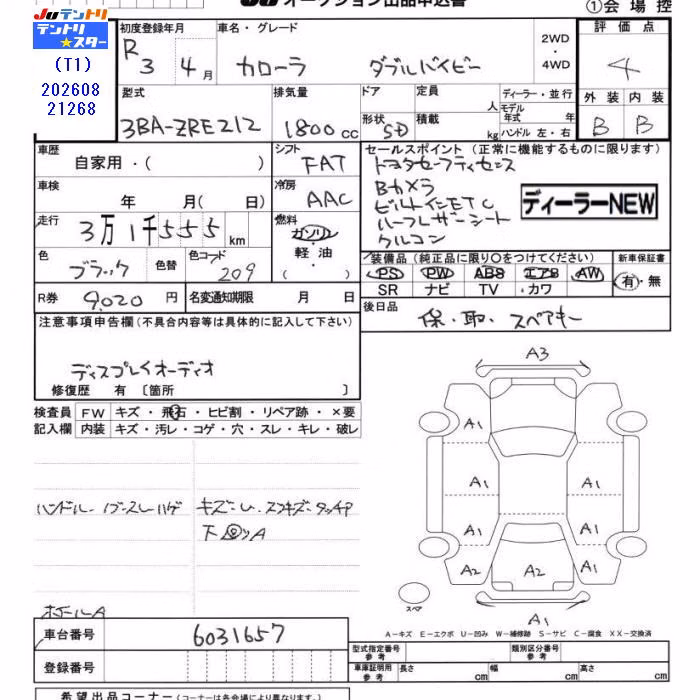 JUテントリ
テントリ★スター
(T1)
202608
21268
JU オークション出品申込書
①会場控
初度登録年月
R 3 4月
車名・グレード
カローラ ダブルバイビー
2WD・4WD
評価点
4
外装 内装
B B
型式
3BA-ZRE212
排気量
1800cc
ドア
形状 SD
定員 人
積載 kg
ディーラー・並行
モデル年式 年
ハンドル 左・右
車歴
自家用・( )
シフト
FAT
セールスポイント(正常に機能するものに限ります)
トヨタセーフティセンス
Bカメラ
ビルトインETC
ハーフレザーシート
クルコン
ディーラーNEW
車検
年 月( 日)
冷房
AAC
走行
3万1千555km
燃料
ガソリン・軽油・( )
色
ブラック
色替
色コード
209
装備品(純正品に限り〇をつけてください)
新車保証書
有・無
PS PW ABS エアB AW
SR ナビ TV カワ
R券 9,020円
名変通知期限 月 日
後日品
保・取、スペアキー
注意事項申告欄(不具合内容等は具体的に記入して下さい)
ディスプレイオーディオ
修復歴 有〔箇所 〕
検査員記入欄
FW キズ・飛石・ヒビ割・リペア跡・×要
内装 キズ・汚レ・コゲ・穴・スレ・キレ・破レ
ハンドル、ノブスレハゲ
ホイールA
A3
A1
A1 A1
A1 A1
A2 A2 A1
A1
スペア
A-キズ E-エクボ U-凹み W-補修跡 S-サビ C-腐食 XX-交換済
車台番号
6031657
登録番号
型式指定番号 参考
類別区分番号 参考
車庫証明用 参考
長さ cm 幅 cm 高さ cm
希望出品コーナー(コーナーは各会場により異なります)